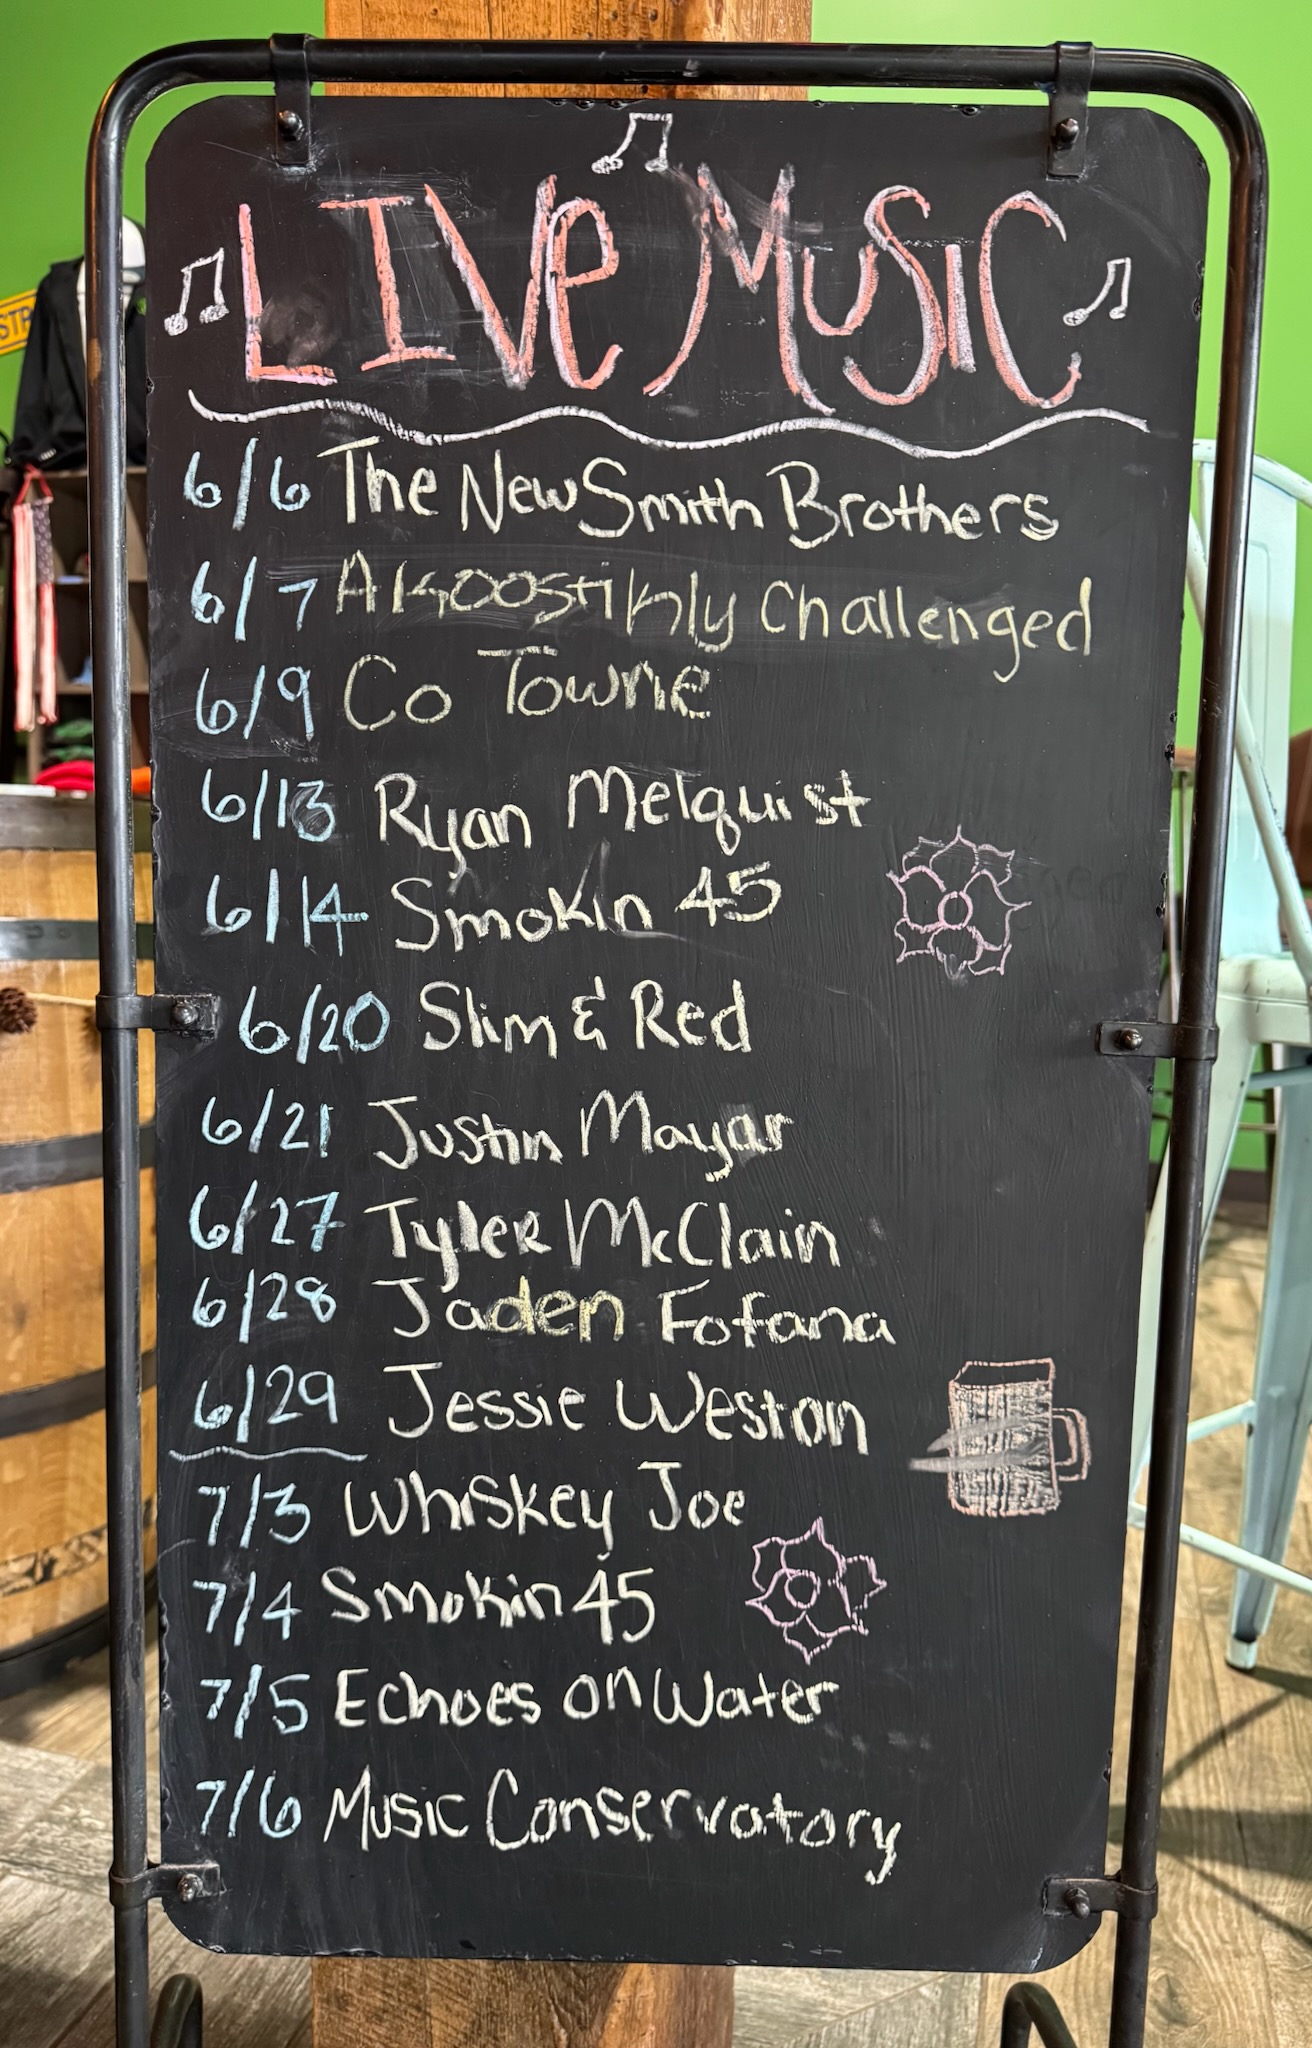 STR
LIVE MUSIC
6/6 The New Smith Brothers
6/7 AKoostikly Challenged
6/9 Co Towne
6/13 Ryan Melquist
6/14 Smokin 45
6/20 Slim & Red
6/21 Justin Mayar
6/27 Tyler McClain
6/28 Jaden Fofana
6/29 Jessie Weston
7/3 Whiskey Joe
7/4 Smokin 45
7/5 Echoes on Water
7/6 Music Conservatory